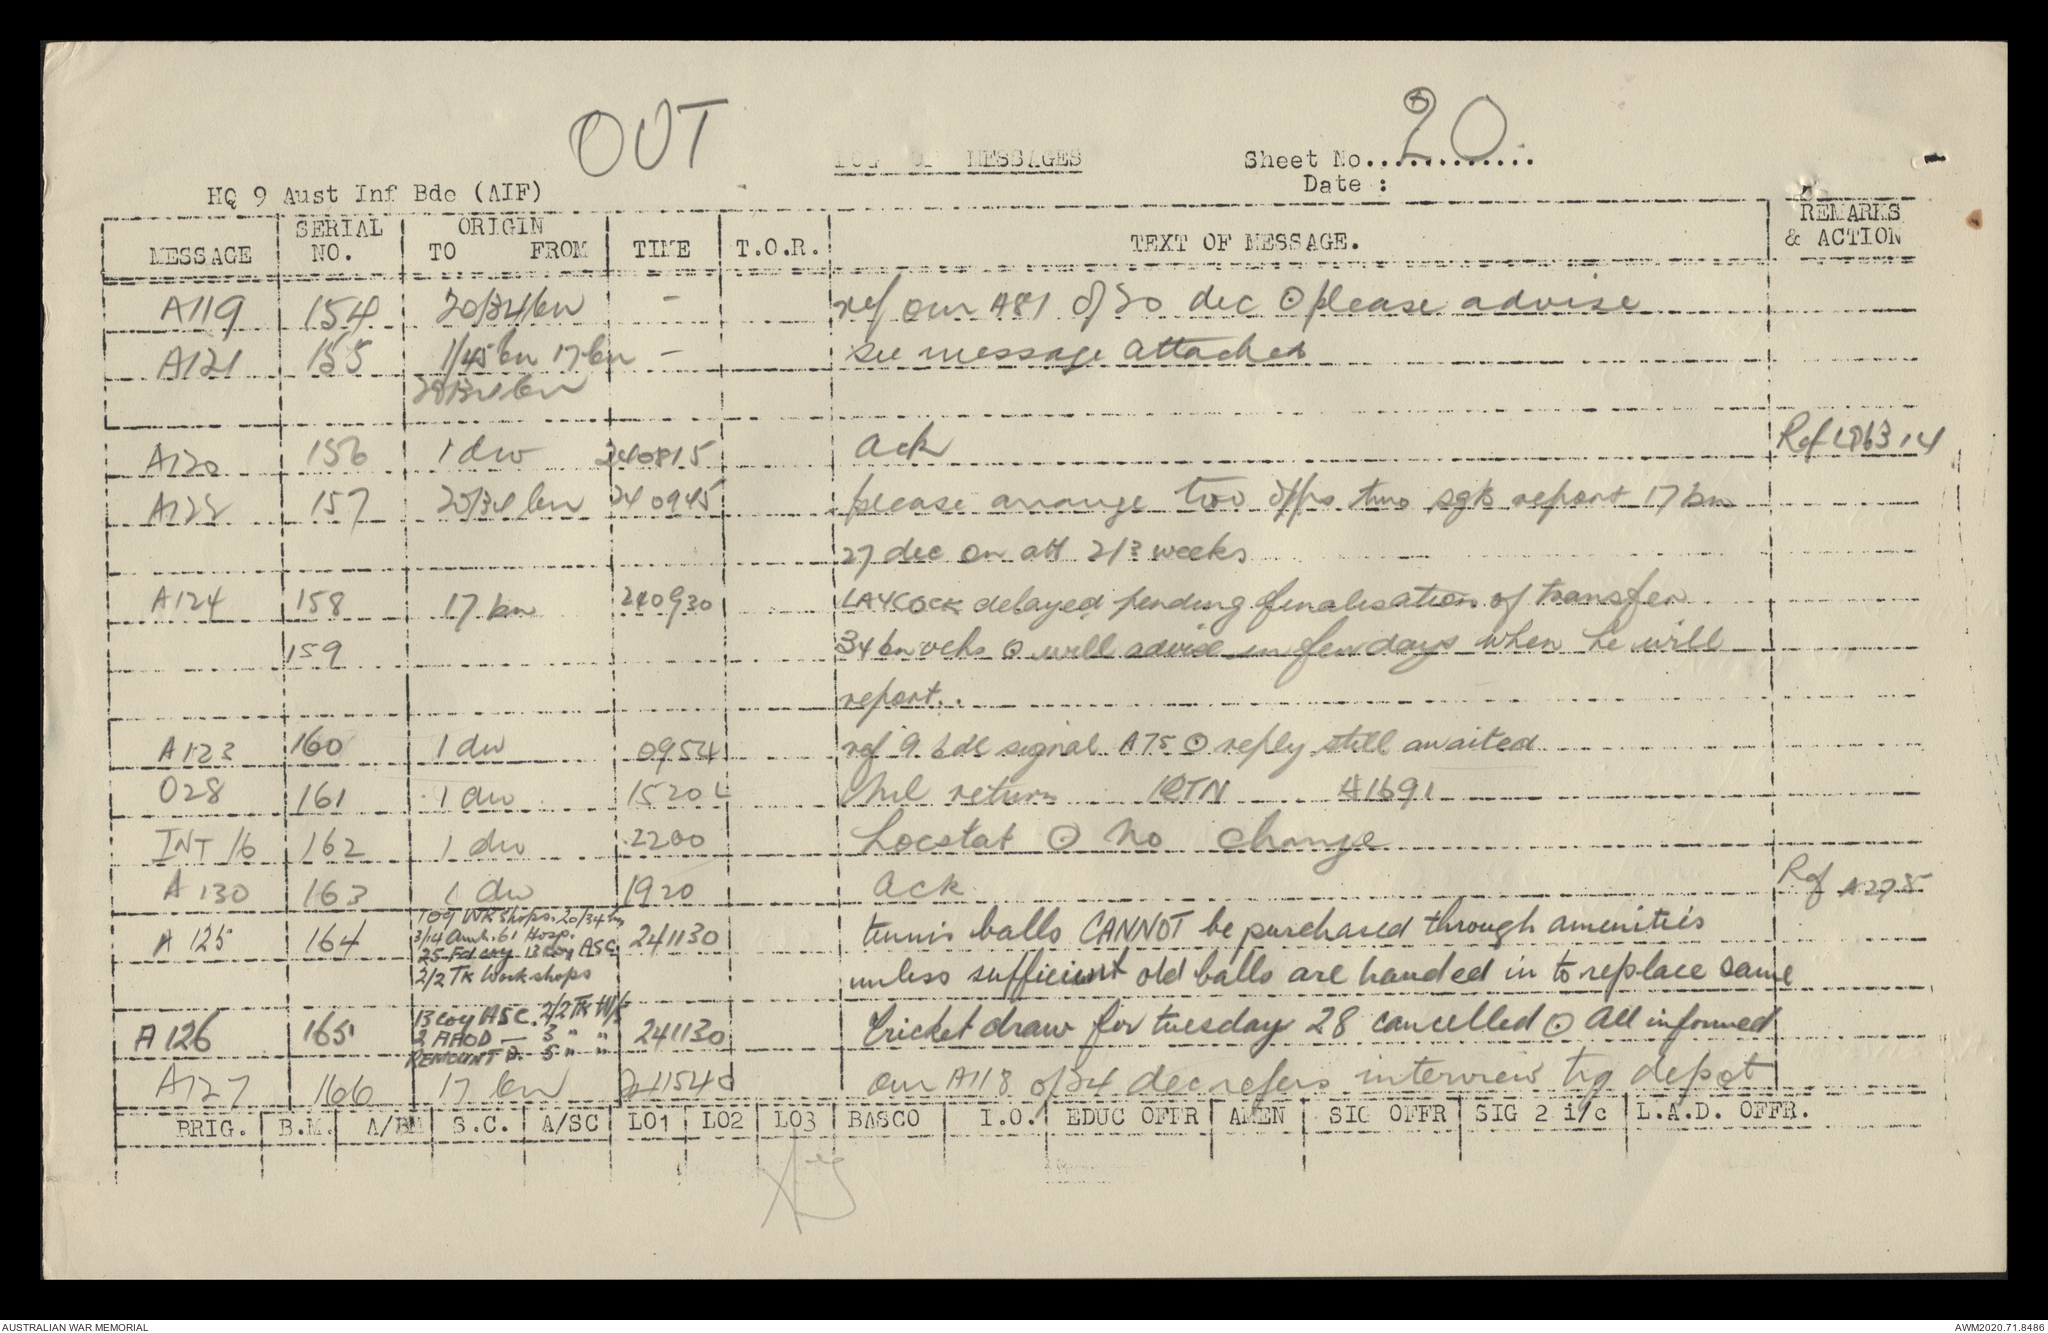 OUT
LOG OF MESSAGES
Sheet No. 20
Date :
HQ 9 Aust Inf Bde (AIF)
MESSAGE SERIAL NO. ORIGIN TO FROM TIME T.O.R. TEXT OF MESSAGE. REMARKS & ACTION
A119 154 20/34 bn - ref our A81 of 20 dec ⊙ please advise
A121 155 1/45 bn 17 bn - see message attached
20/34 bn
A120 156 1 div 240815 ack Ref
A122 157 20/34 bn 240945 please arrange two offrs two sgts report 17 bn
27 dec on att 2/3 weeks
A124 158 17 bn 240930 LAYCOCK delayed pending finalisation of transfer
159 34 bn vehs ⊙ will advise in few days when he will
report..
A123 160 1 div 0954 ref 9 bde signal A75 ⊙ reply still awaited
O28 161 1 div 1520 L Nil return A1691
INT 16 162 1 div 2200 Locstat ⊙ No change
A 130 163 1 div 1920 ack Ref A275
109 WKshops. 20/34 bn
A 125 164 3/14 Amb. 61 Hosp. 241130 tennis balls CANNOT be purchased through amenities
25 Fd coy 13 Coy ASC
2/2 TK Workshops unless sufficient old balls are handed in to replace same
13 coy ASC. 2/2 TK W/S
A 126 165 2 AAOD — 3 " " 241130 Cricket draw for tuesday 28 cancelled ⊙ All informed
REMOUNT D. 5 " "
A127 166 17 bn 241540 our A118 of 24 dec refers interview trg depot
BRIG. B.M. A/BM S.C. A/SC LO1 LO2 LO3 BASCO I.O. EDUC OFFR AMEN SIG OFFR SIG 2 i/c L.A.D. OFFR.
AUSTRALIAN WAR MEMORIAL AWM2020.71.8486